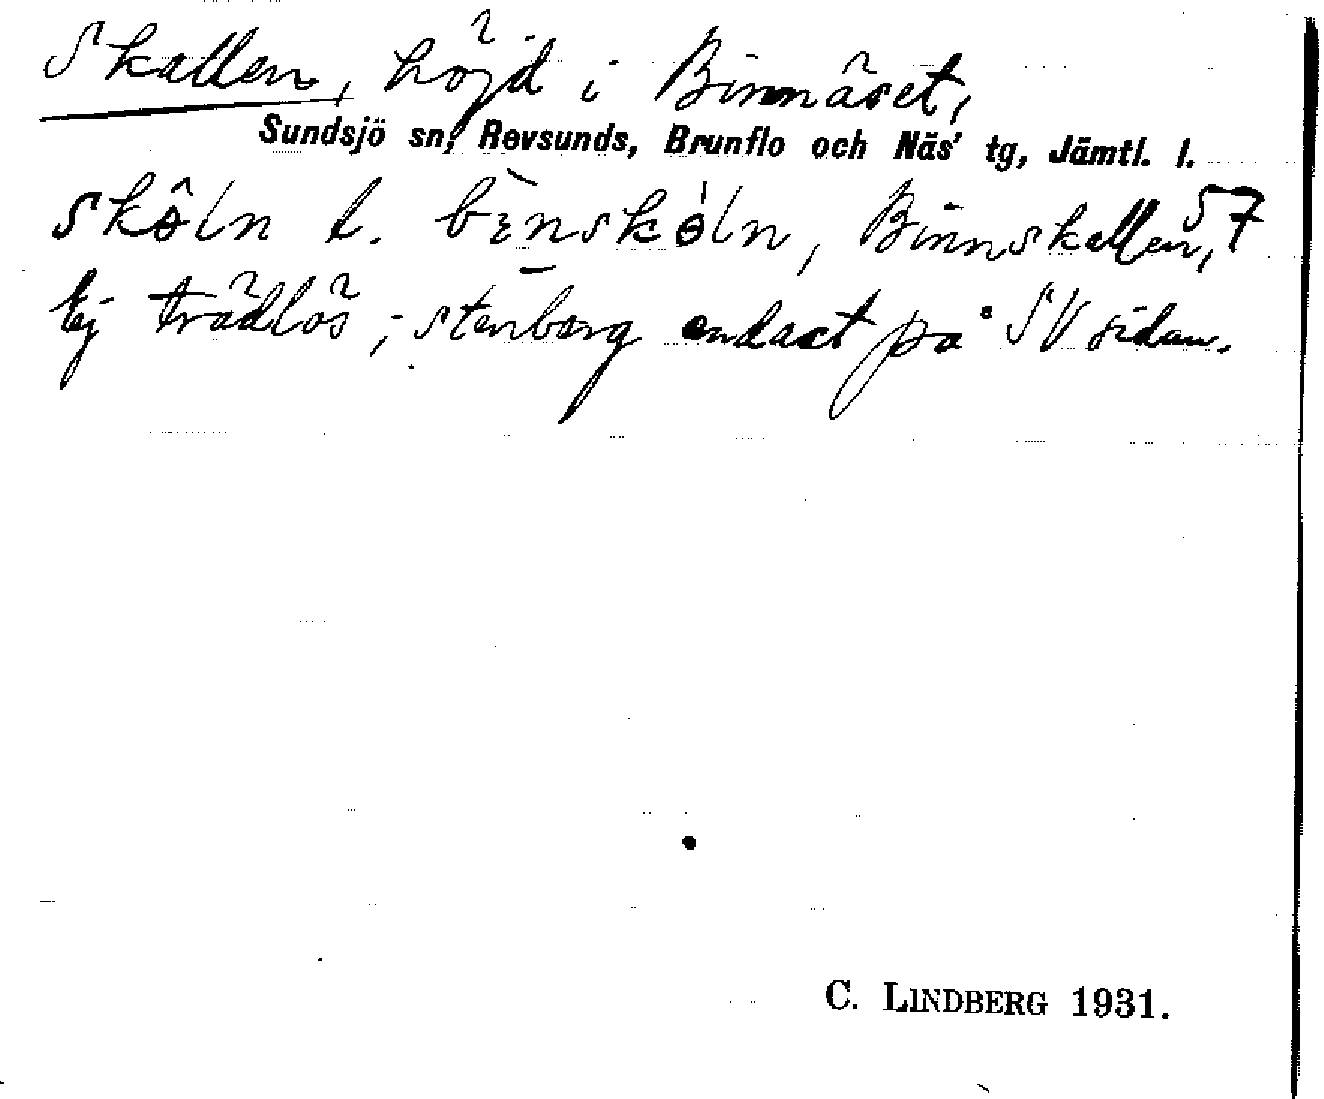 Skallen, höjd i Binnäset,
Sundsjö sn, Revsunds, Brunflo och Näs' tg, Jämtl. l.
skɵ̂ln l. bɛ̀nskɵ̀ln, Binnskallen, 57
Ej trädlös; stenberg endast på SV sidan.
C. LINDBERG 1931.